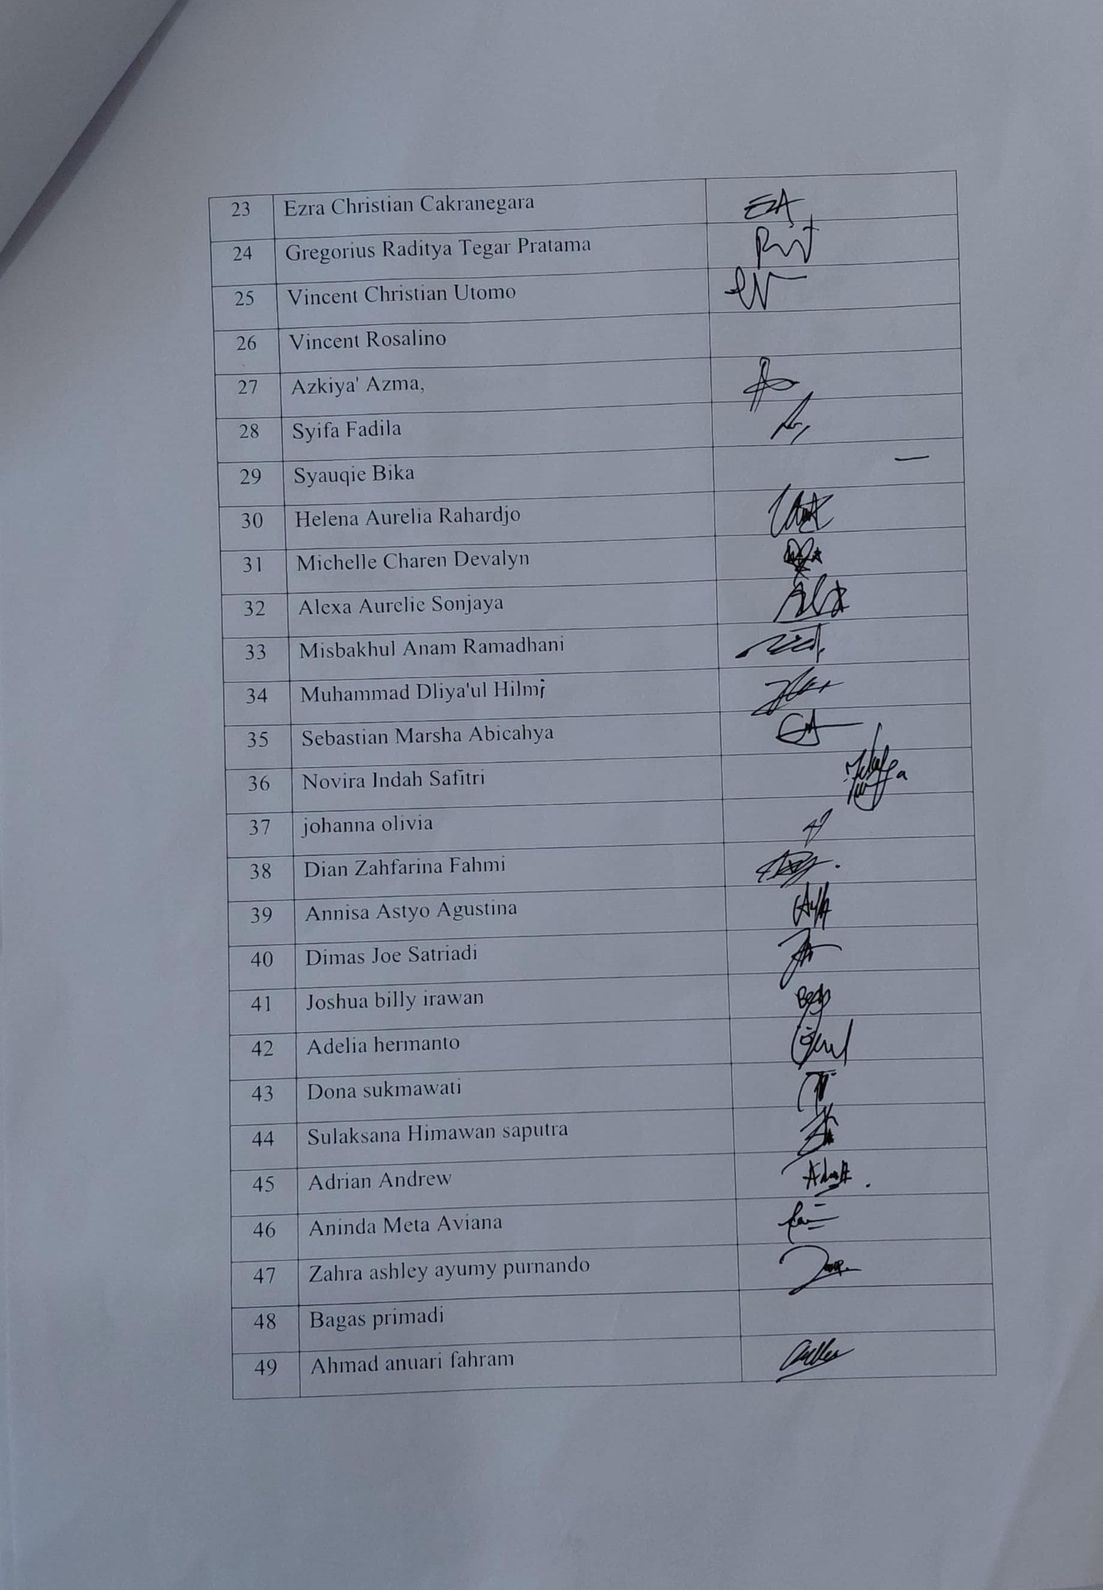 23 Ezra Christian Cakranegara EZA
24 Gregorius Raditya Tegar Pratama
25 Vincent Christian Utomo
26 Vincent Rosalino
27 Azkiya' Azma,
28 Syifa Fadila
29 Syauqie Bika —
30 Helena Aurelia Rahardjo
31 Michelle Charen Devalyn
32 Alexa Aurelie Sonjaya
33 Misbakhul Anam Ramadhani
34 Muhammad Dliya'ul Hilmi
35 Sebastian Marsha Abicahya
36 Novira Indah Safitri
37 johanna olivia
38 Dian Zahfarina Fahmi
39 Annisa Astyo Agustina
40 Dimas Joe Satriadi
41 Joshua billy irawan
42 Adelia hermanto
43 Dona sukmawati
44 Sulaksana Himawan saputra
45 Adrian Andrew
46 Aninda Meta Aviana
47 Zahra ashley ayumy purnando
48 Bagas primadi
49 Ahmad anuari fahram